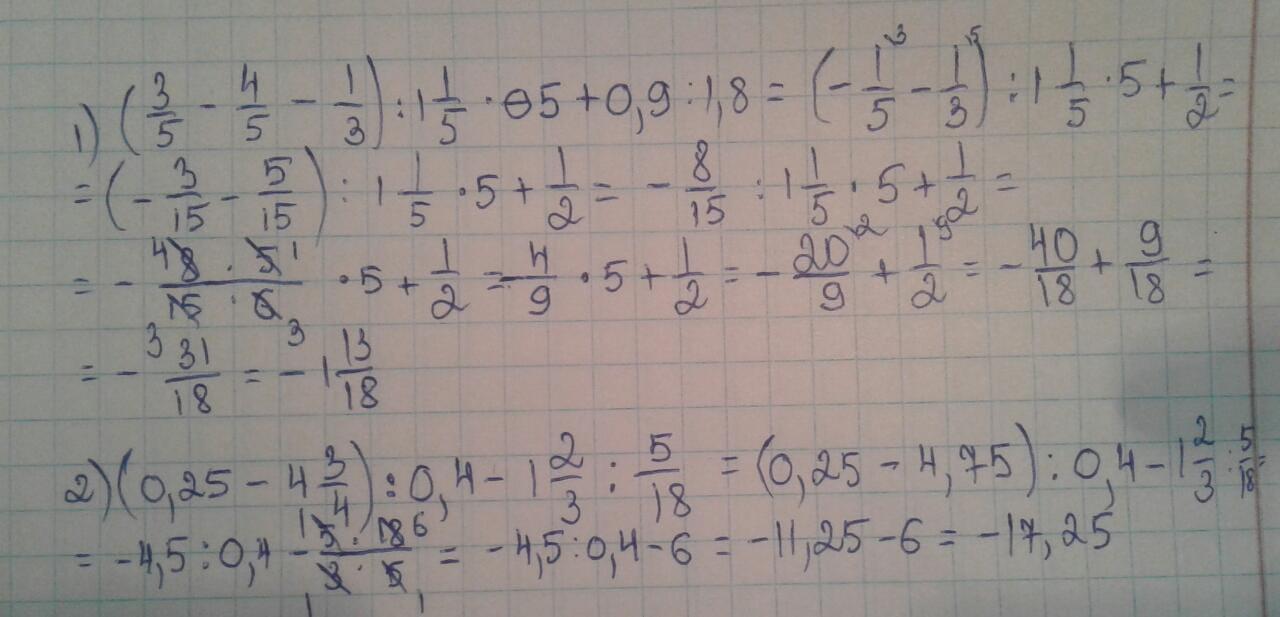 1) (3/5 − 4/5 − 1/3) : 1 1/5 · 05 + 0,9 : 1,8 = (− 1/5 ³ − 1/3 ⁵) : 1 1/5 · 5 + 1/2 =
= (− 3/15 − 5/15) : 1 1/5 · 5 + 1/2 = − 8/15 : 1 1/5 · 5 + 1/2 =
= − 4 8 · 5 1 / 3 15 · 6 3 · 5 + 1/2 = − 4/9 · 5 + 1/2 = − 20/9 ² + 1/2 ⁹ = − 40/18 + 9/18 =
= − 31/18 = − 1 13/18
2) (0,25 − 4 3/4) : 0,4 − 1 2/3 : 5/18 = (0,25 − 4,75) : 0,4 − 1 2/3 : 5/18 =
= −4,5 : 0,4 − 1 5 · 18 6 / 1 3 · 5 1 = −4,5 : 0,4 − 6 = −11,25 − 6 = −17,25